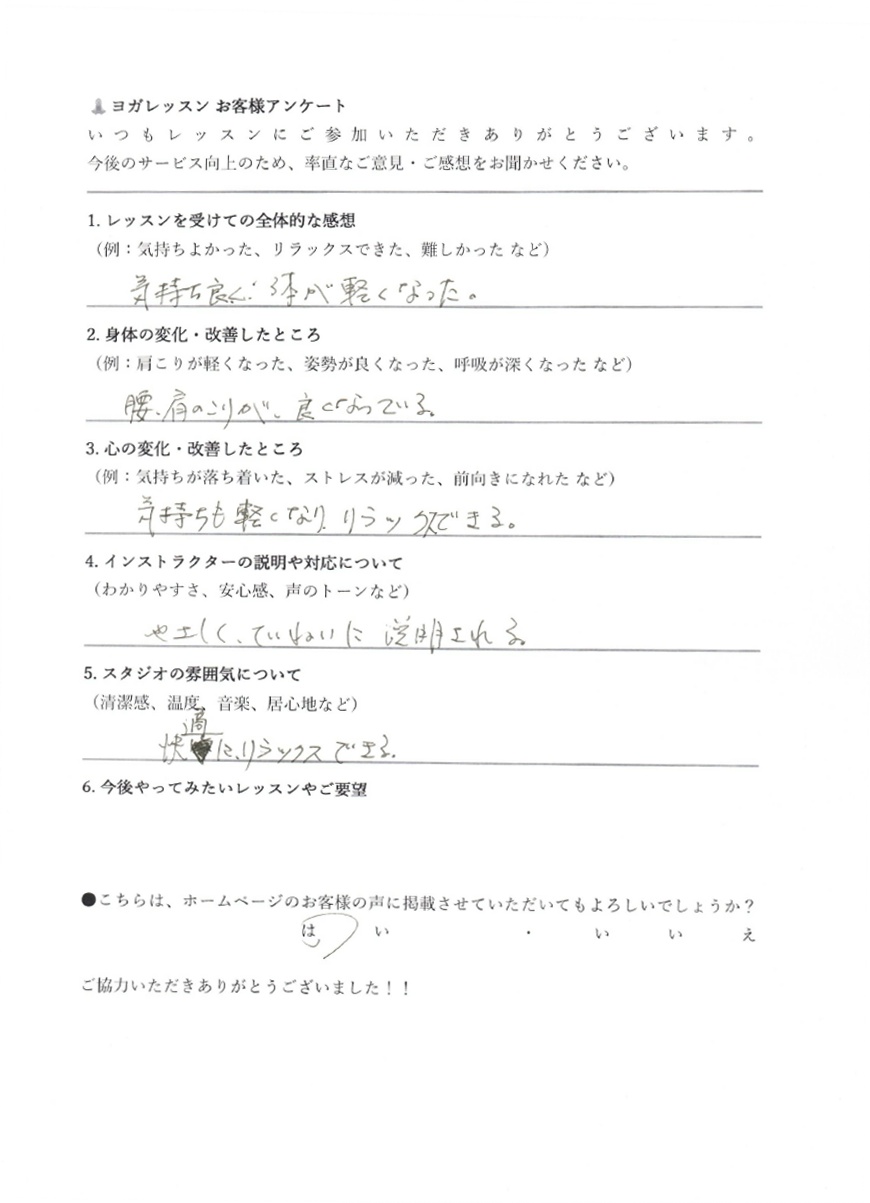 ヨガレッスン お客様アンケート
いつもレッスンにご参加いただきありがとうございます。
今後のサービス向上のため、率直なご意見・ご感想をお聞かせください。
1. レッスンを受けての全体的な感想
（例：気持ちよかった、リラックスできた、難しかった など）
気持ち良く、体が軽くなった。
2. 身体の変化・改善したところ
（例：肩こりが軽くなった、姿勢が良くなった、呼吸が深くなった など）
腰、肩のこりが、良くなっている。
3. 心の変化・改善したところ
（例：気持ちが落ち着いた、ストレスが減った、前向きになれた など）
気持ちも軽くなり、リラックスできる。
4. インストラクターの説明や対応について
（わかりやすさ、安心感、声のトーンなど）
やさしく、ていねいに説明される。
5. スタジオの雰囲気について
（清潔感、温度、音楽、居心地など）
快適に、リラックスできる。
6. 今後やってみたいレッスンやご要望
●こちらは、ホームページのお客様の声に掲載させていただいてもよろしいでしょうか？
はい ・ いいえ
ご協力いただきありがとうございました！！